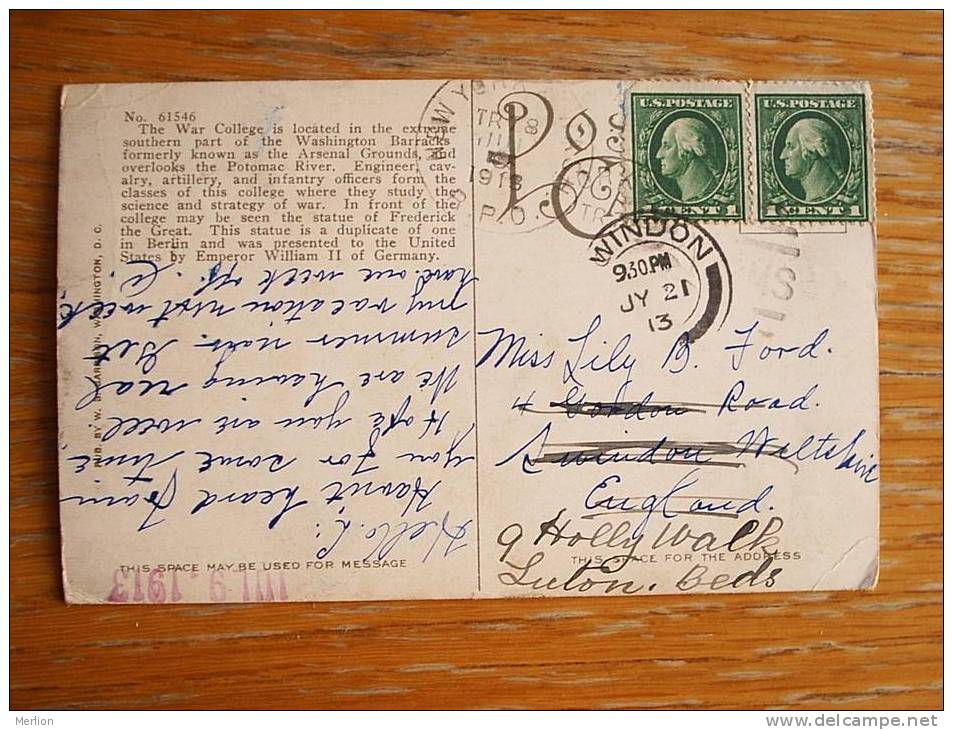 No. 61546
The War College is located in the extreme
southern part of the Washington Barracks
formerly known as the Arsenal Grounds, and
overlooks the Potomac River. Engineer, cav-
alry, artillery, and infantry officers form the
classes of this college where they study the
science and strategy of war. In front of the
college may be seen the statue of Frederick
the Great. This statue is a duplicate of one
in Berlin and was presented to the United
States by Emperor William II of Germany.
Hello L:
Havn't heard from
you for some time
Hope you are well
We are having real
summer now. Get
my vacation next week
hard one week off. C.
PUB. BY W. B. GARRISON, WASHINGTON, D. C.
THIS SPACE MAY BE USED FOR MESSAGE
JUL 9 - 1913
NEW YORK
1913
P.O.
U.S. POSTAGE
1 CENT 1
U.S. POSTAGE
1 CENT 1
SWINDON
9.30 PM
JY 21
13
Miss Lily B. Ford.
4 Gordon Road.
Swindon Waltshire
England.
9 Holly Walk
Luton. Beds
THIS SPACE FOR THE ADDRESS
Merlion
www.delcampe.net